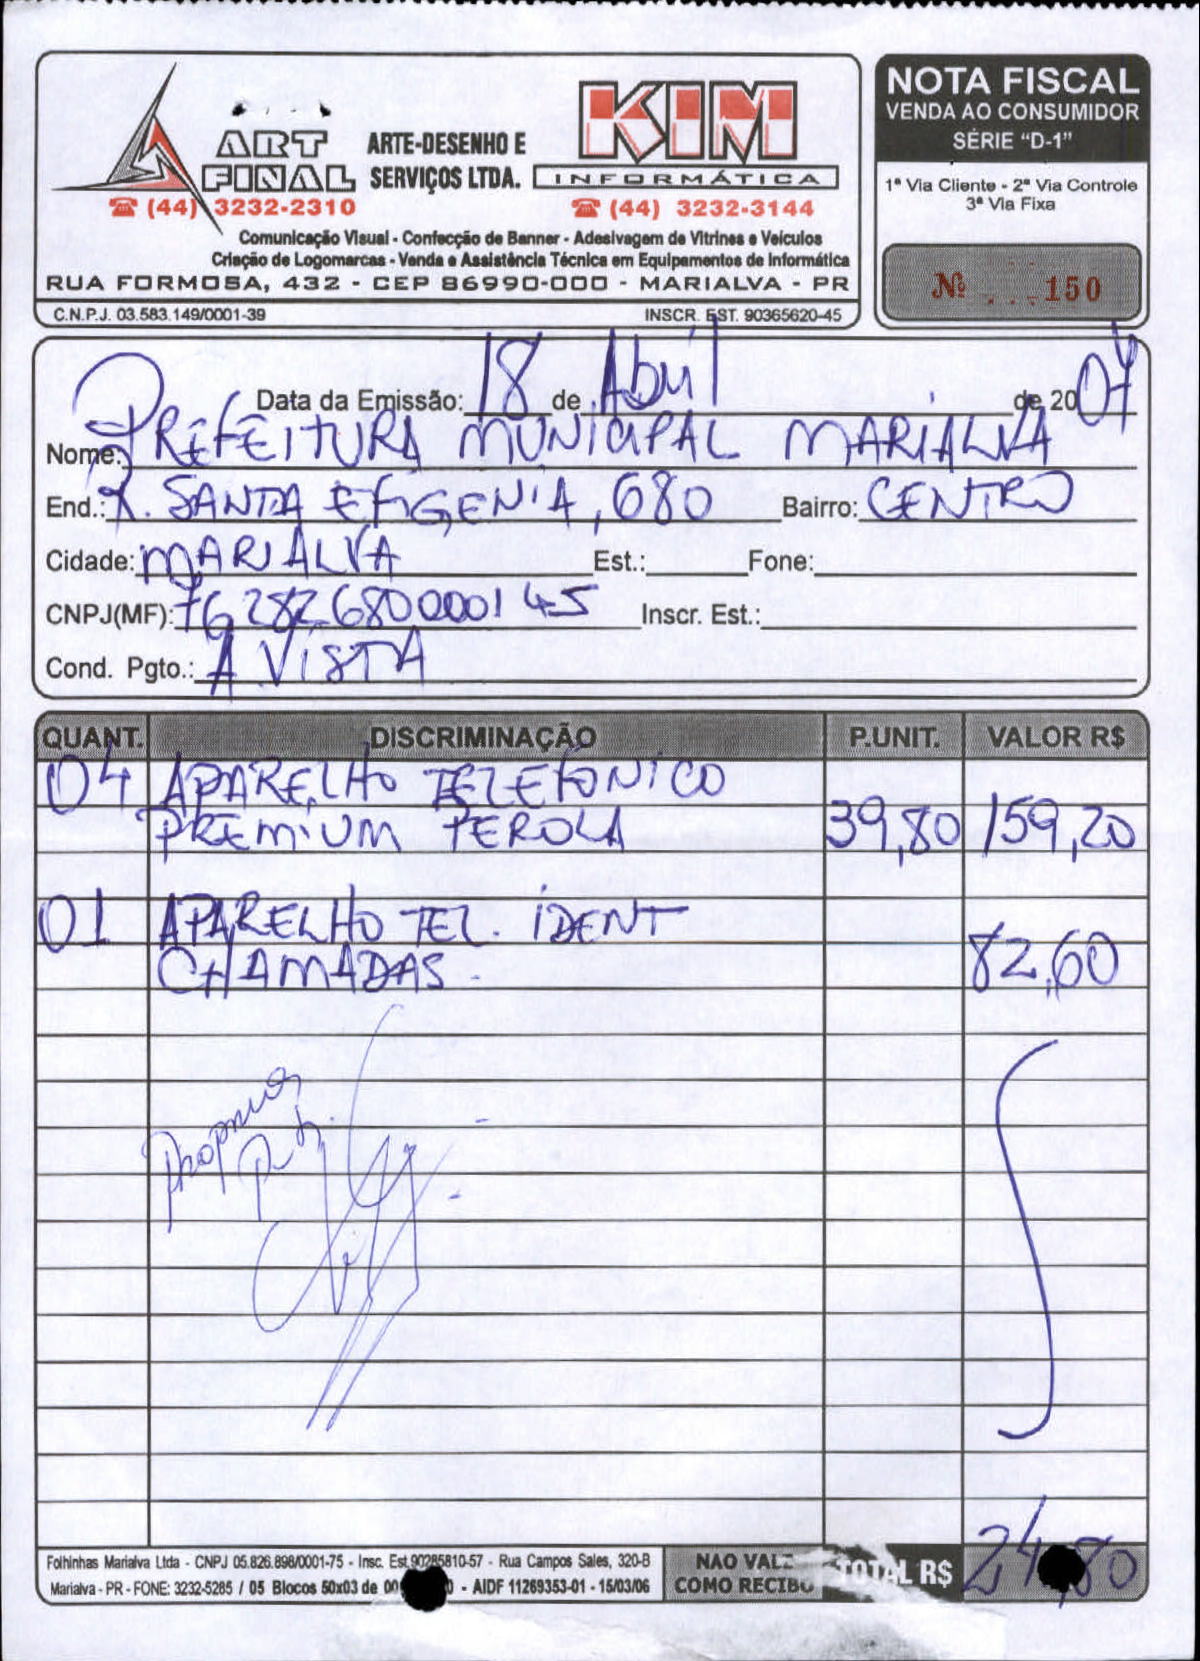 ART FINAL
ARTE-DESENHO E SERVIÇOS LTDA.
KIM
INFORMÁTICA
(44) 3232-2310
(44) 3232-3144
Comunicação Visual - Confecção de Banner - Adesivagem de Vitrines e Veículos
Criação de Logomarcas - Venda e Assistência Técnica em Equipamentos de Informática
RUA FORMOSA, 432 - CEP 86990-000 - MARIALVA - PR
C.N.P.J. 03.583.149/0001-39 INSCR. EST. 90365620-45
NOTA FISCAL
VENDA AO CONSUMIDOR
SÉRIE "D-1"
1ª Via Cliente - 2ª Via Controle
3ª Via Fixa
Nº 150
Data da Emissão: 18 de Abril de 2007
Nome: PREFEITURA MUNICIPAL MARIALVA
End.: R. SANTA EFIGENIA, 680 Bairro: CENTRO
Cidade: MARIALVA Est.: Fone:
CNPJ(MF): 76282680000145 Inscr. Est.:
Cond. Pgto.: A VISTA
QUANT. DISCRIMINAÇÃO P.UNIT. VALOR R$
04 APARELHO TELEFONICO
PREMIUM PEROLA 39,80 159,20
01 APARELHO TEL. IDENT
CHAMADAS. 82,60
Folhinhas Marialva Ltda - CNPJ 05.826.898/0001-75 - Insc. Est. 90285810-57 - Rua Campos Sales, 320-B
Marialva - PR - FONE: 3232-5285 / 05 Blocos 50x03 de - AIDF 11269353-01 - 15/03/06
NAO VALE
COMO RECIBO
TOTAL R$ 24 ,80